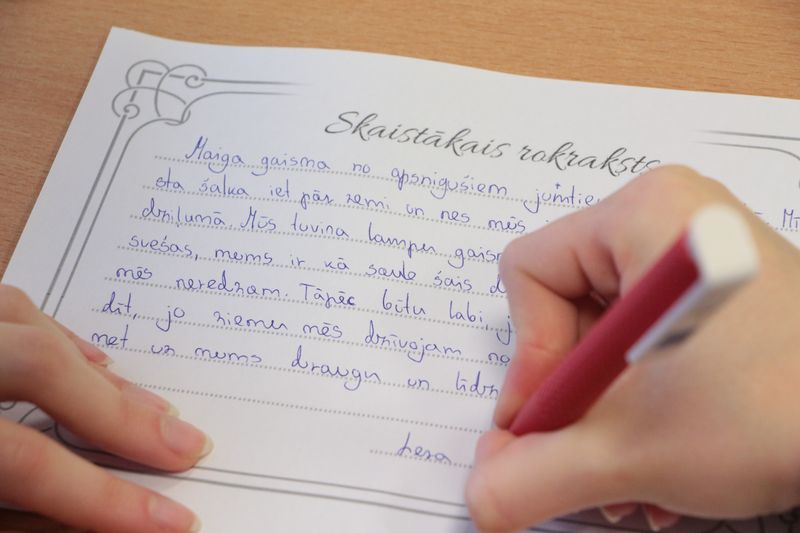 Skaistākais rokraksts
Maiga gaisma no apsnigušiem jumtiem Mī
sta šalka iet pār zemi un nes mūs
dziļumā. Mūs tuvina lampu gaism
svešas, mums ir kā saule šais d
mēs neredzam. Tāpēc būtu labi, j
dīt, jo ziemu mēs dzīvojam no
met uz mums draugu un līdz